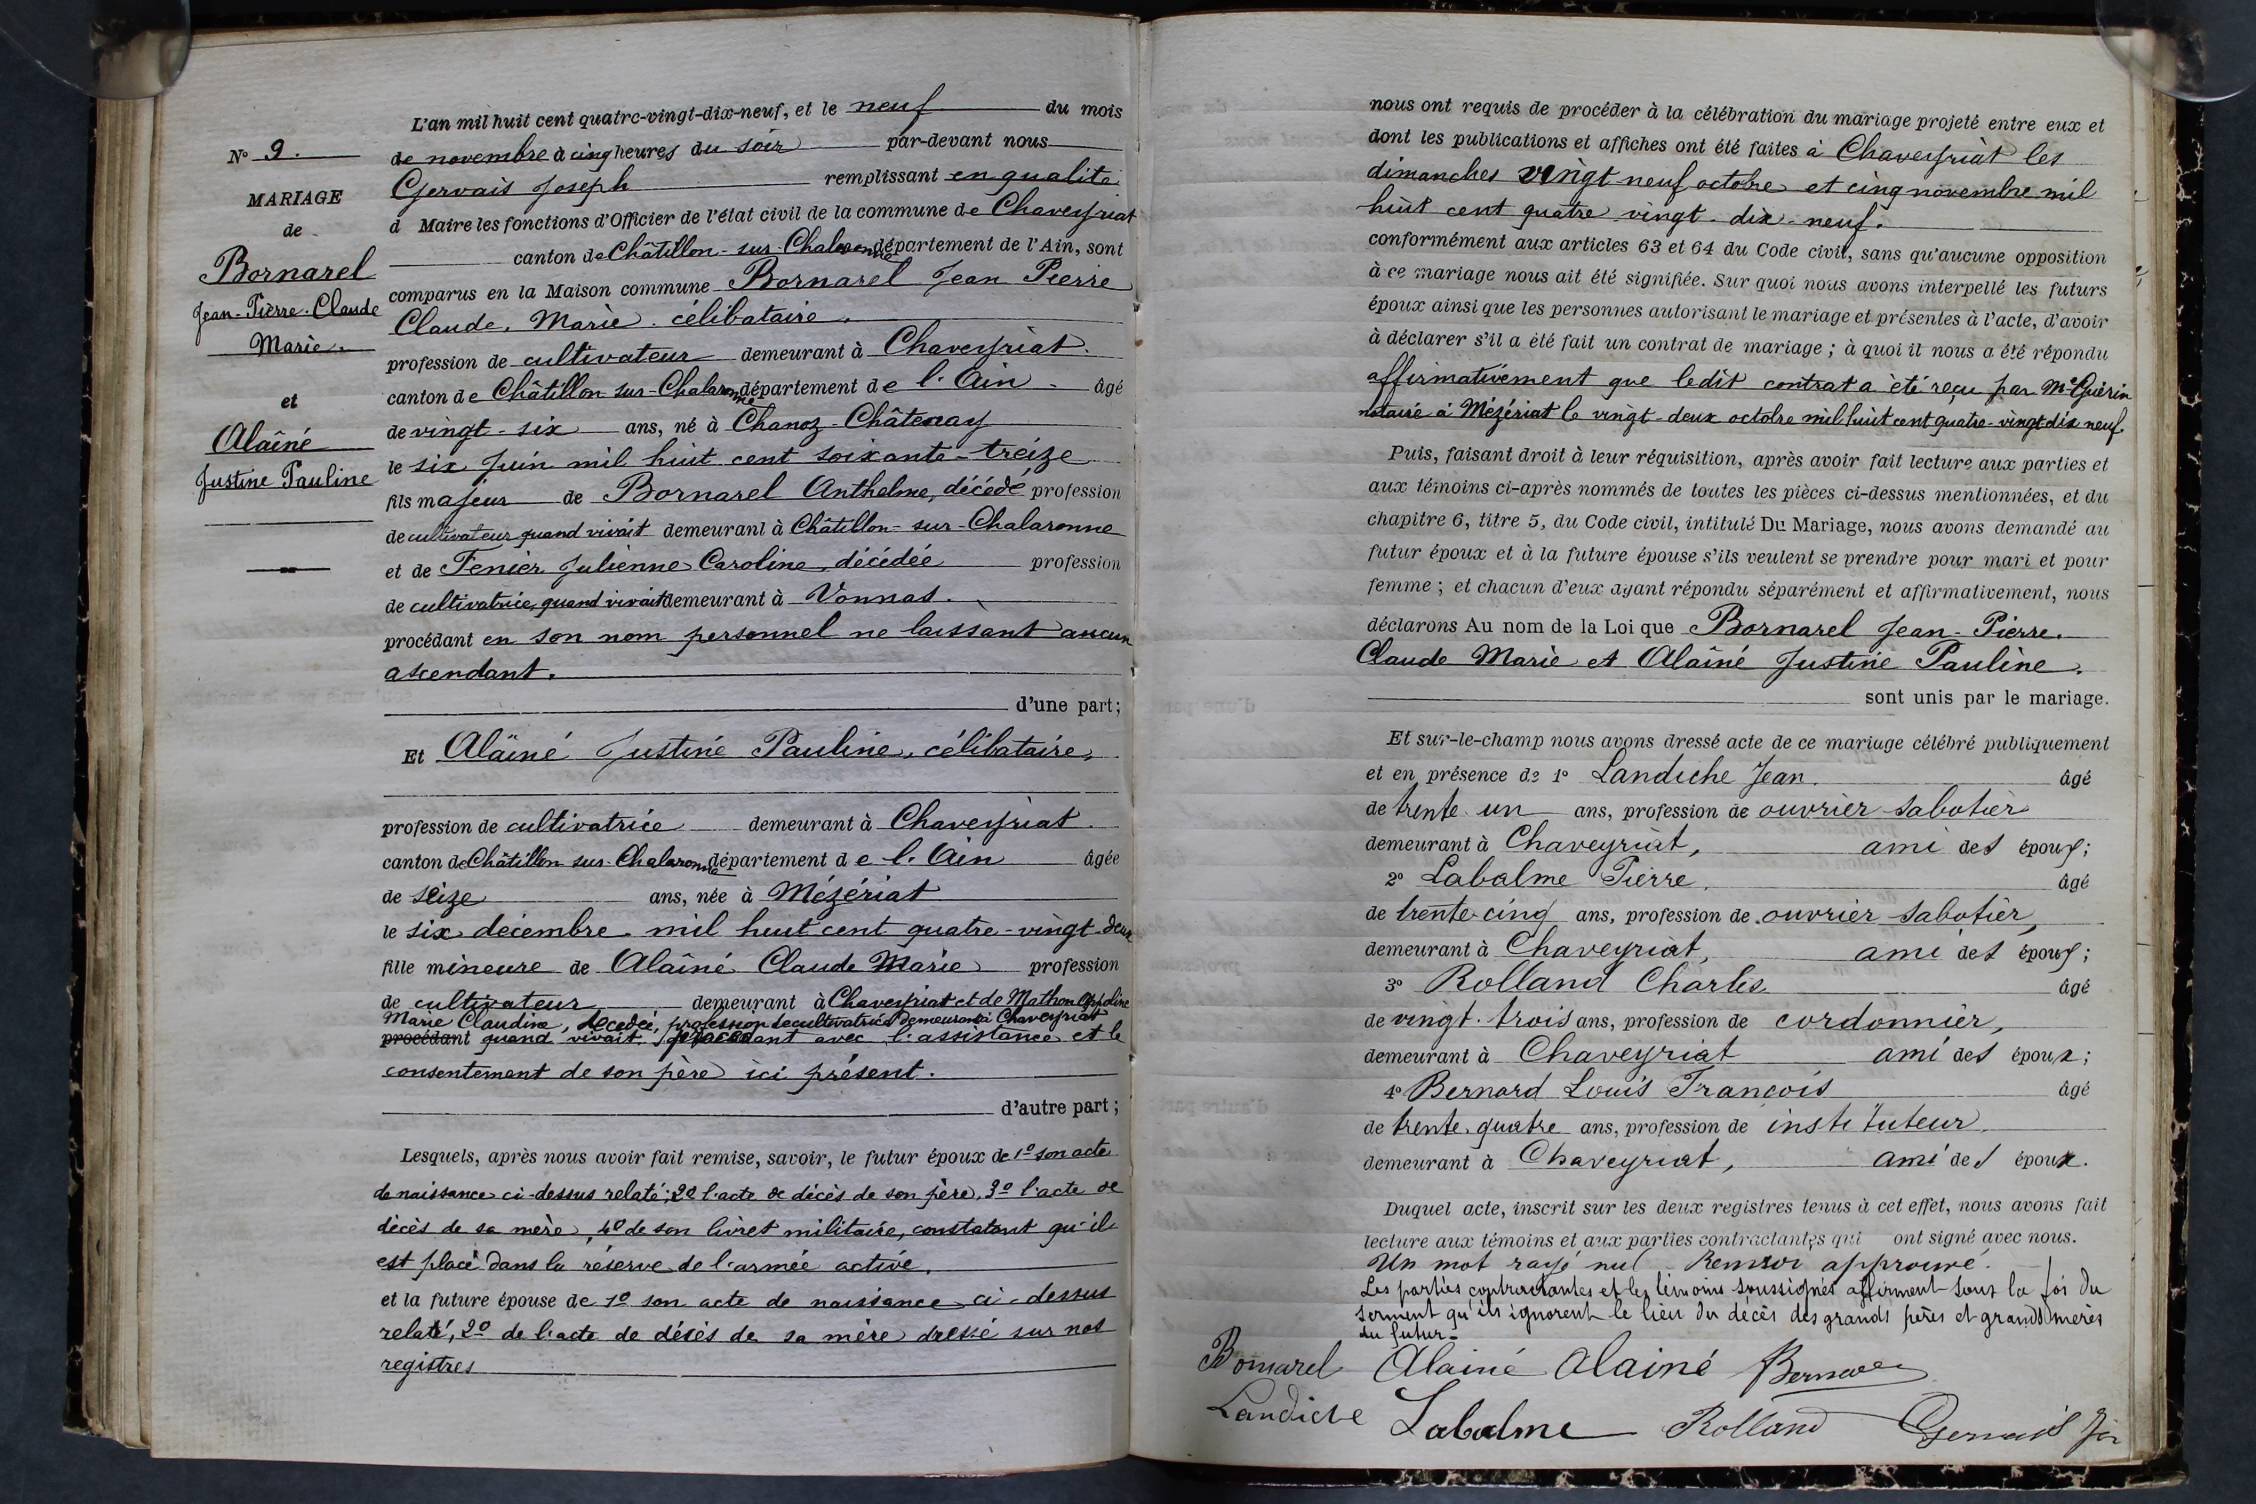 N° 9.
MARIAGE
de
Bornarel
Jean-Pierre-Claude
Marie.
et
Alaîné
Justine Pauline
L'an mil huit cent quatre-vingt-dix-neuf, et le neuf du mois
de novembre à cinq heures du soir par-devant nous
Gervais Joseph remplissant en qualité
d Maire les fonctions d'Officier de l'état civil de la commune de Chaveyriat
canton de Châtillon-sur-Chalaronne département de l'Ain, sont
comparus en la Maison commune Bornarel Jean Pierre
Claude, Marie. célibataire.
profession de cultivateur demeurant à Chaveyriat.
canton de Châtillon sur-Chalaronne département de l'Ain âgé
de vingt-six ans, né à Chanoz-Châtenay
le six juin mil huit cent soixante-treize
fils majeur de Bornarel Anthelme, décédé profession
de cultivateur quand vivait demeurant à Châtillon-sur-Chalaronne
et de Fenier Julienne Caroline, décédée profession
de cultivatrice, quand vivait demeurant à Vonnas.
procédant en son nom personnel ne laissant aucun
ascendant.
d'une part;
Et Alaîné Justine Pauline, célibataire,
profession de cultivatrice demeurant à Chaveyriat.
canton de Châtillon sur-Chalaronne département de l'Ain âgée
de seize ans, née à Mézériat
le six décembre mil huit cent quatre-vingt-deux
fille mineure de Alaîné Claude Marie profession
de cultivateur demeurant à Chaveyriat et de Mathon Appoline
Marie Claudine, décédée, profession de cultivatrice demeurant à Chaveyriat
procédant quand vivait, procédant avec l'assistance et le
consentement de son père ici présent.
d'autre part;
Lesquels, après nous avoir fait remise, savoir, le futur époux de 1° son acte
de naissance ci-dessus relaté; 2° l'acte de décès de son père, 3° l'acte de
décès de sa mère, 4° de son livret militaire, constatant qu'il
est placé dans la réserve de l'armée active.
et la future épouse de 1° son acte de naissance ci-dessus
relaté, 2° de l'acte de décès de sa mère dressé sur nos
registres
nous ont requis de procéder à la célébration du mariage projeté entre eux et
dont les publications et affiches ont été faites à Chaveyriat les
dimanches vingt-neuf octobre et cinq novembre mil
huit cent quatre-vingt-dix-neuf.
conformément aux articles 63 et 64 du Code civil, sans qu'aucune opposition
à ce mariage nous ait été signifiée. Sur quoi nous avons interpellé les futurs
époux ainsi que les personnes autorisant le mariage et présentes à l'acte, d'avoir
à déclarer s'il a été fait un contrat de mariage; à quoi il nous a été répondu
affirmativement que ledit contrat a été reçu par Me Guérin
notaire à Mézériat le vingt-deux octobre mil huit cent quatre-vingt dix neuf.
Puis, faisant droit à leur réquisition, après avoir fait lecture aux parties et
aux témoins ci-après nommés de toutes les pièces ci-dessus mentionnées, et du
chapitre 6, titre 5, du Code civil, intitulé Du Mariage, nous avons demandé au
futur époux et à la future épouse s'ils veulent se prendre pour mari et pour
femme; et chacun d'eux ayant répondu séparément et affirmativement, nous
déclarons Au nom de la Loi que Bornarel Jean-Pierre.
Claude Marie et Alaîné Justine Pauline.
sont unis par le mariage.
Et sur-le-champ nous avons dressé acte de ce mariage célébré publiquement
et en présence de 1° Landiche Jean. âgé
de trente un ans, profession de ouvrier sabotier
demeurant à Chaveyriat, ami des époux;
2° Labalme Pierre, âgé
de trente-cinq ans, profession de ouvrier sabotier,
demeurant à Chaveyriat, ami des époux;
3° Rolland Charles âgé
de vingt-trois ans, profession de cordonnier,
demeurant à Chaveyriat ami des époux;
4° Bernard Louis François âgé
de trente-quatre ans, profession de instituteur.
demeurant à Chaveyriat, ami des époux.
Duquel acte, inscrit sur les deux registres tenus à cet effet, nous avons fait
lecture aux témoins et aux parties contractantes qui ont signé avec nous.
Un mot rayé nul. Renvoi approuvé.
Les parties contractantes et les témoins soussignés affirment sous la foi du
serment qu'ils ignorent le lieu du décès des grands pères et grands mères
du futur.
Bornarel Alainé Alainé Bernard
Landiche Labalme Rolland Gervais